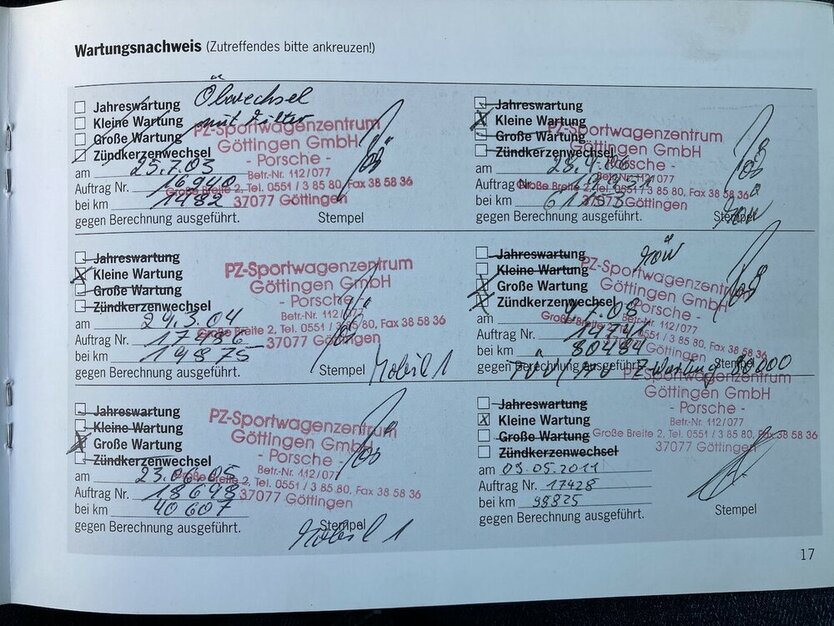 Wartungsnachweis (Zutreffendes bitte ankreuzen!)
Jahreswartung Ölwechsel
Kleine Wartung mit Filter
Große Wartung
Zündkerzenwechsel
am 25.7.03
Auftrag Nr. 16940
bei km 1482
gegen Berechnung ausgeführt. Stempel
PZ-Sportwagenzentrum
Göttingen GmbH
- Porsche -
Betr.-Nr. 112/077
Große Breite 2, Tel. 0551 / 3 85 80, Fax 38 58 36
37077 Göttingen
Jahreswartung
Kleine Wartung
Große Wartung
Zündkerzenwechsel
am 24.3.04
Auftrag Nr. 17486
bei km 19875
gegen Berechnung ausgeführt. Stempel Mobil 1
PZ-Sportwagenzentrum
Göttingen GmbH
- Porsche -
Betr.-Nr. 112/077
Große Breite 2, Tel. 0551 / 3 85 80, Fax 38 58 36
37077 Göttingen
Jahreswartung
Kleine Wartung
Große Wartung
Zündkerzenwechsel
am 23.06.05
Auftrag Nr. 18648
bei km 40607
gegen Berechnung ausgeführt. Stempel
Mobil 1
PZ-Sportwagenzentrum
Göttingen GmbH
- Porsche -
Betr.-Nr. 112/077
Große Breite 2, Tel. 0551 / 3 85 80, Fax 38 58 36
37077 Göttingen
Jahreswartung
Kleine Wartung
Große Wartung
Zündkerzenwechsel
am
Auftrag Nr.
bei km
gegen Berechnung ausgeführt. Stempel
PZ-Sportwagenzentrum
Göttingen GmbH
- Porsche -
Betr.-Nr. 112/077
Große Breite 2, Tel. 0551 / 3 85 80, Fax 38 58 36
37077 Göttingen
Jahreswartung
Kleine Wartung
Große Wartung
Zündkerzenwechsel
am
Auftrag Nr.
bei km 80484
gegen Berechnung ausgeführt. Stempel
TÜV/AU Wartung 80000
PZ-Sportwagenzentrum
Göttingen GmbH
- Porsche -
Betr.-Nr. 112/077
Große Breite 2, Tel. 0551 / 3 85 80, Fax 38 58 36
37077 Göttingen
Jahreswartung
Kleine Wartung
Große Wartung
Zündkerzenwechsel
am 03.05.2011
Auftrag Nr. 17428
bei km 98825
gegen Berechnung ausgeführt. Stempel
PZ-Sportwagenzentrum
Göttingen GmbH
- Porsche -
Betr.-Nr. 112/077
Große Breite 2, Tel. 0551 / 3 85 80, Fax 38 58 36
37077 Göttingen
17